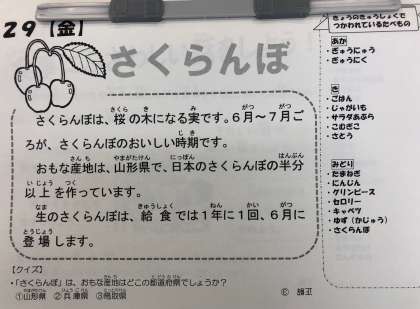 29【金】
さくらんぼ
さくらんぼは、桜の木になる実です。6月〜7月ご
ろが、さくらんぼのおいしい時期です。
おもな産地は、山形県で、日本のさくらんぼの半分
以上を作っています。
生のさくらんぼは、給食では1年に1回、6月に
登場します。
【クイズ】
・「さくらんぼ」は、おもな産地はどこの都道府県でしょうか?
①山形県 ②兵庫県 ③鳥取県
きょうのきゅうしょくで
つかわれているたべもの
あか
・ぎゅうにゅう
・ぎゅうにく
き
・ごはん
・じゃがいも
・サラダあぶら
・こむぎこ
・さとう
みどり
・たまねぎ
・にんじん
・グリンピース
・セロリー
・キャベツ
・ゆず(かじゅう)
・さくらんぼ